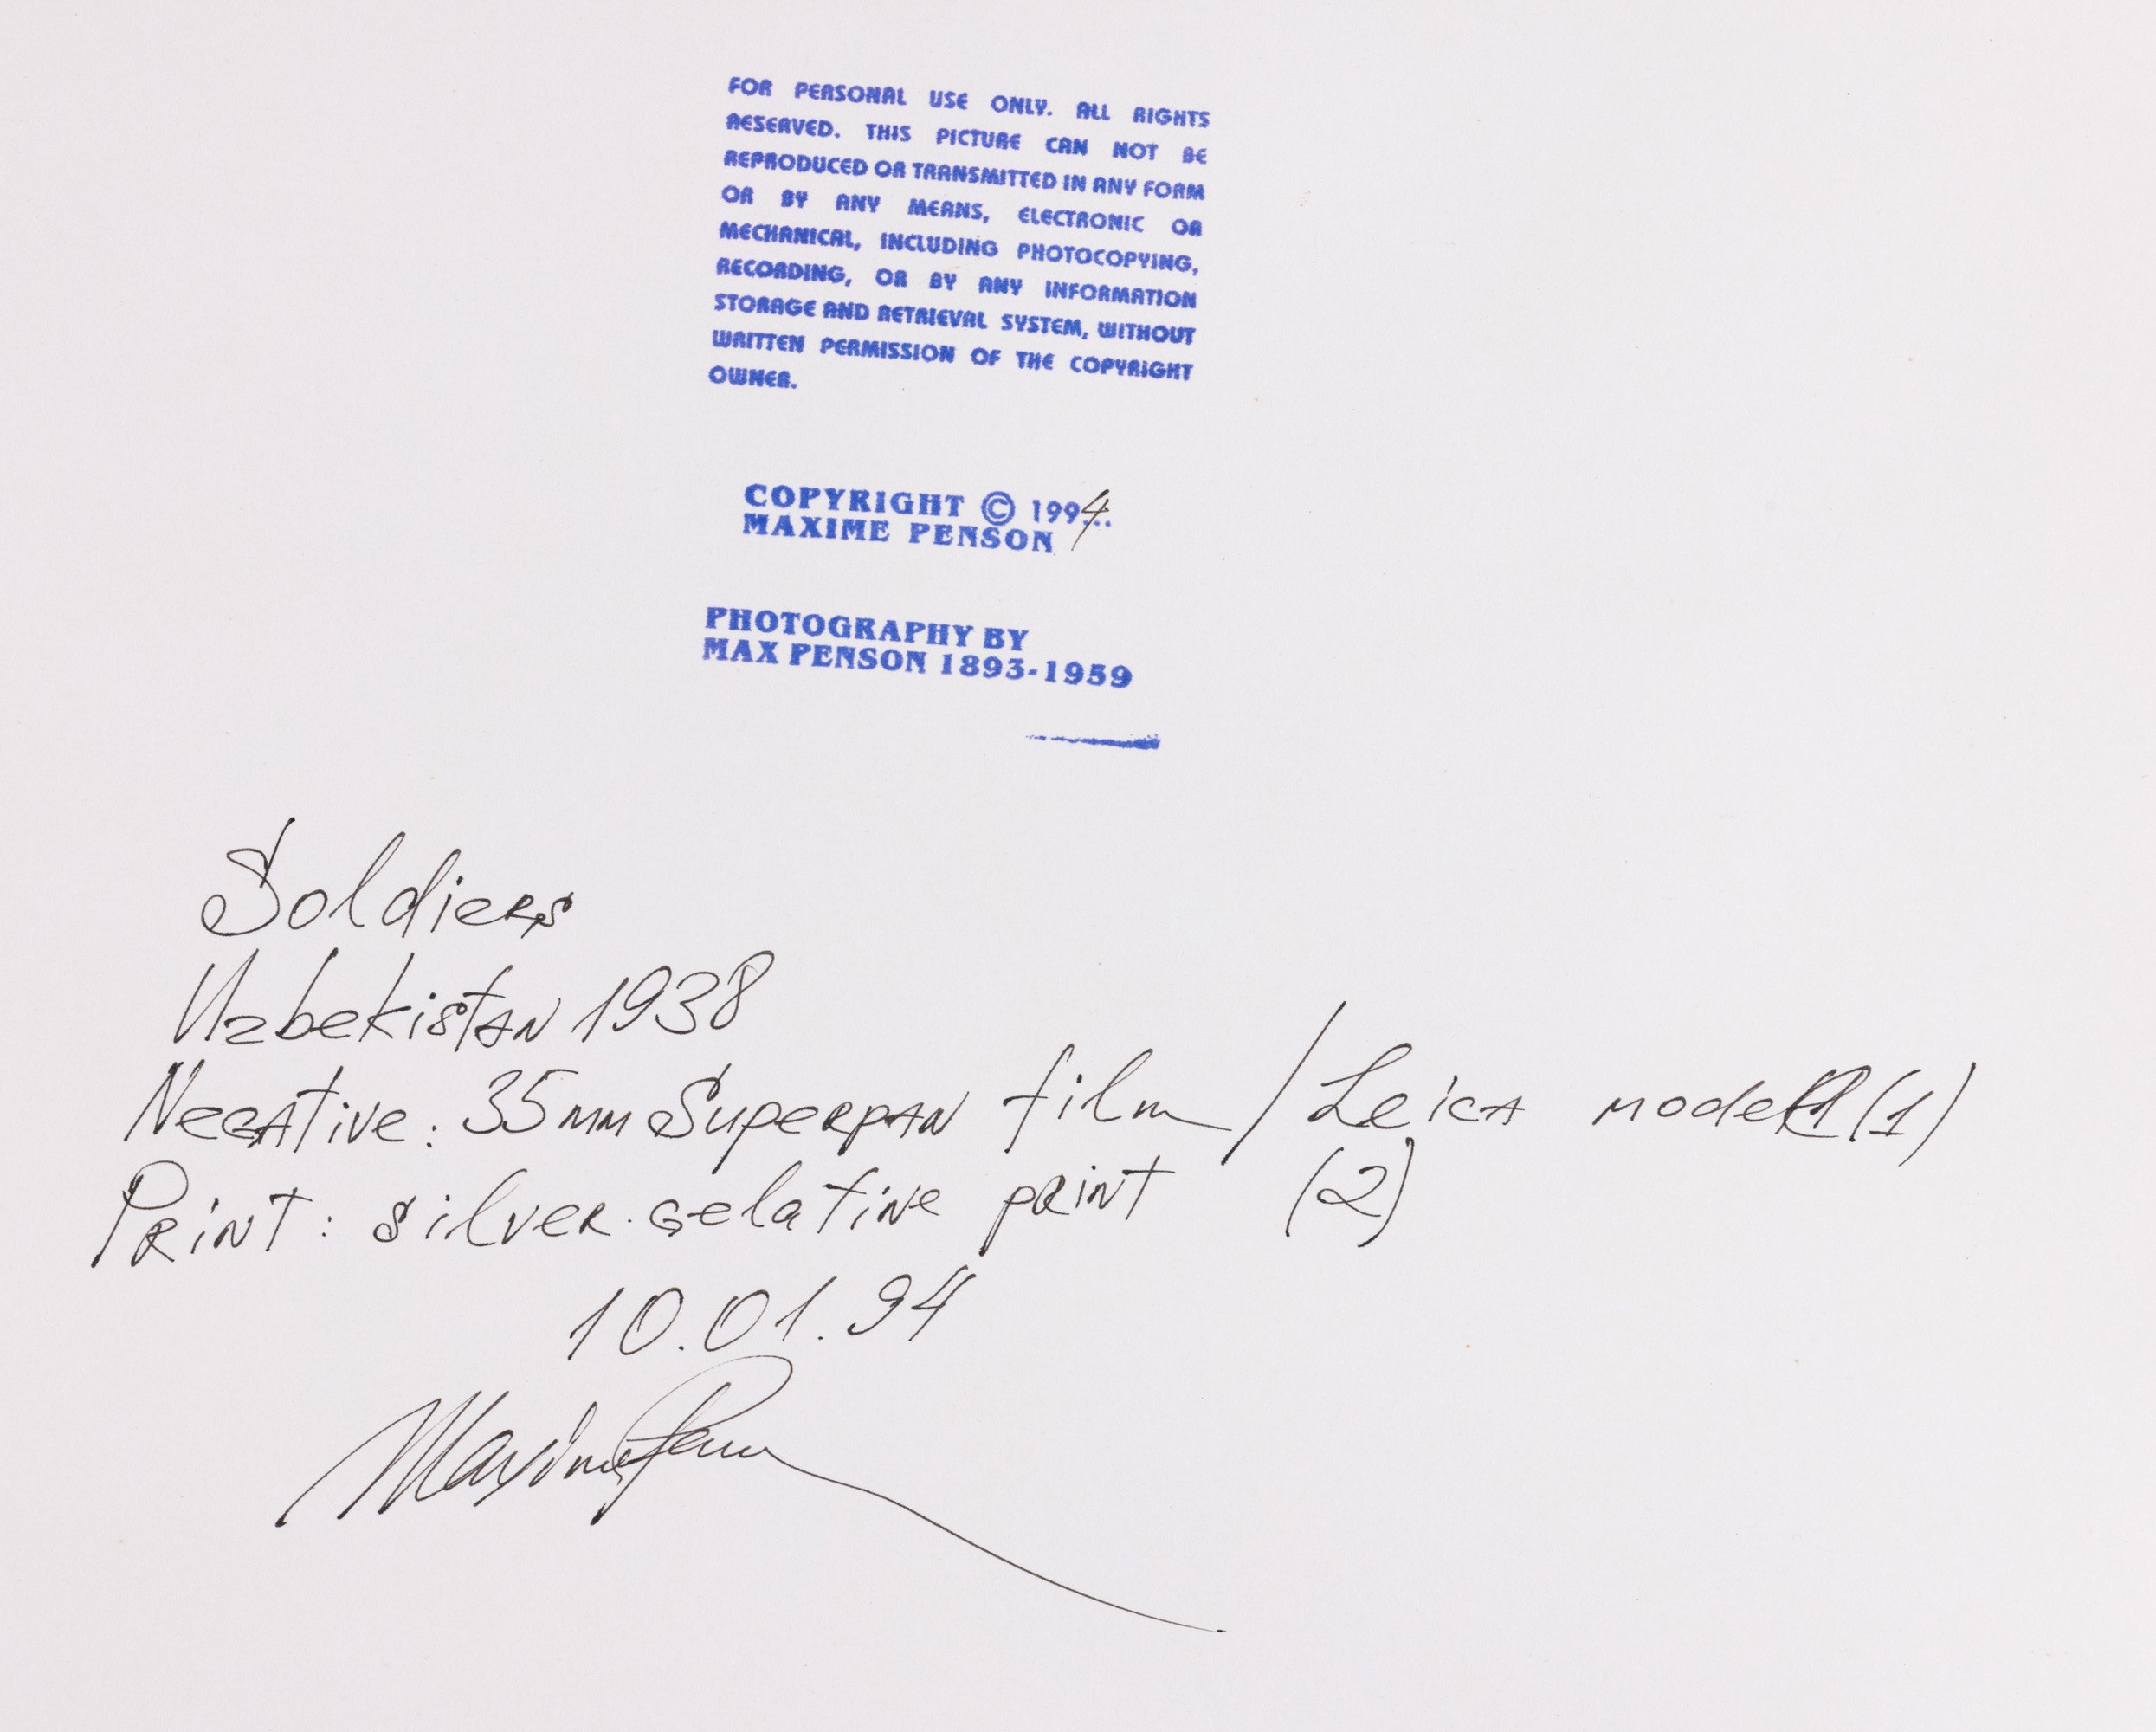 FOR PERSONAL USE ONLY. ALL RIGHTS
RESERVED. THIS PICTURE CAN NOT BE
REPRODUCED OR TRANSMITTED IN ANY FORM
OR BY ANY MEANS, ELECTRONIC OR
MECHANICAL, INCLUDING PHOTOCOPYING,
RECORDING, OR BY ANY INFORMATION
STORAGE AND RETRIEVAL SYSTEM, WITHOUT
WRITTEN PERMISSION OF THE COPYRIGHT
OWNER.
COPYRIGHT © 1994
MAXIME PENSON
PHOTOGRAPHY BY
MAX PENSON 1893-1959
Soldiers
Uzbekistan 1938
Negative: 35mm Superpan film / Leica modell (1)
Print: silver gelatine print (2)
10.01.94
Maxime Penson